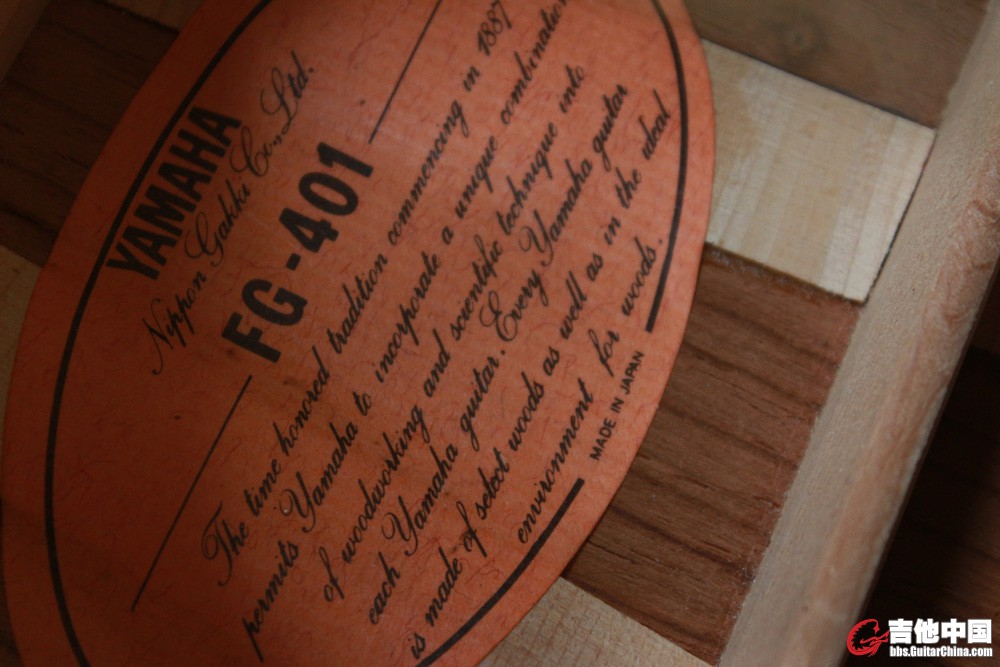 YAMAHA
Nippon Gakki Co., Ltd.
FG-401
The time honored tradition commencing in 1887
permits Yamaha to incorporate a unique combination
of woodworking and scientific technique into
each Yamaha guitar. Every Yamaha guitar
is made of select woods as well as in the ideal
environment for woods.
MADE IN JAPAN
吉他中国
bbs.GuitarChina.com